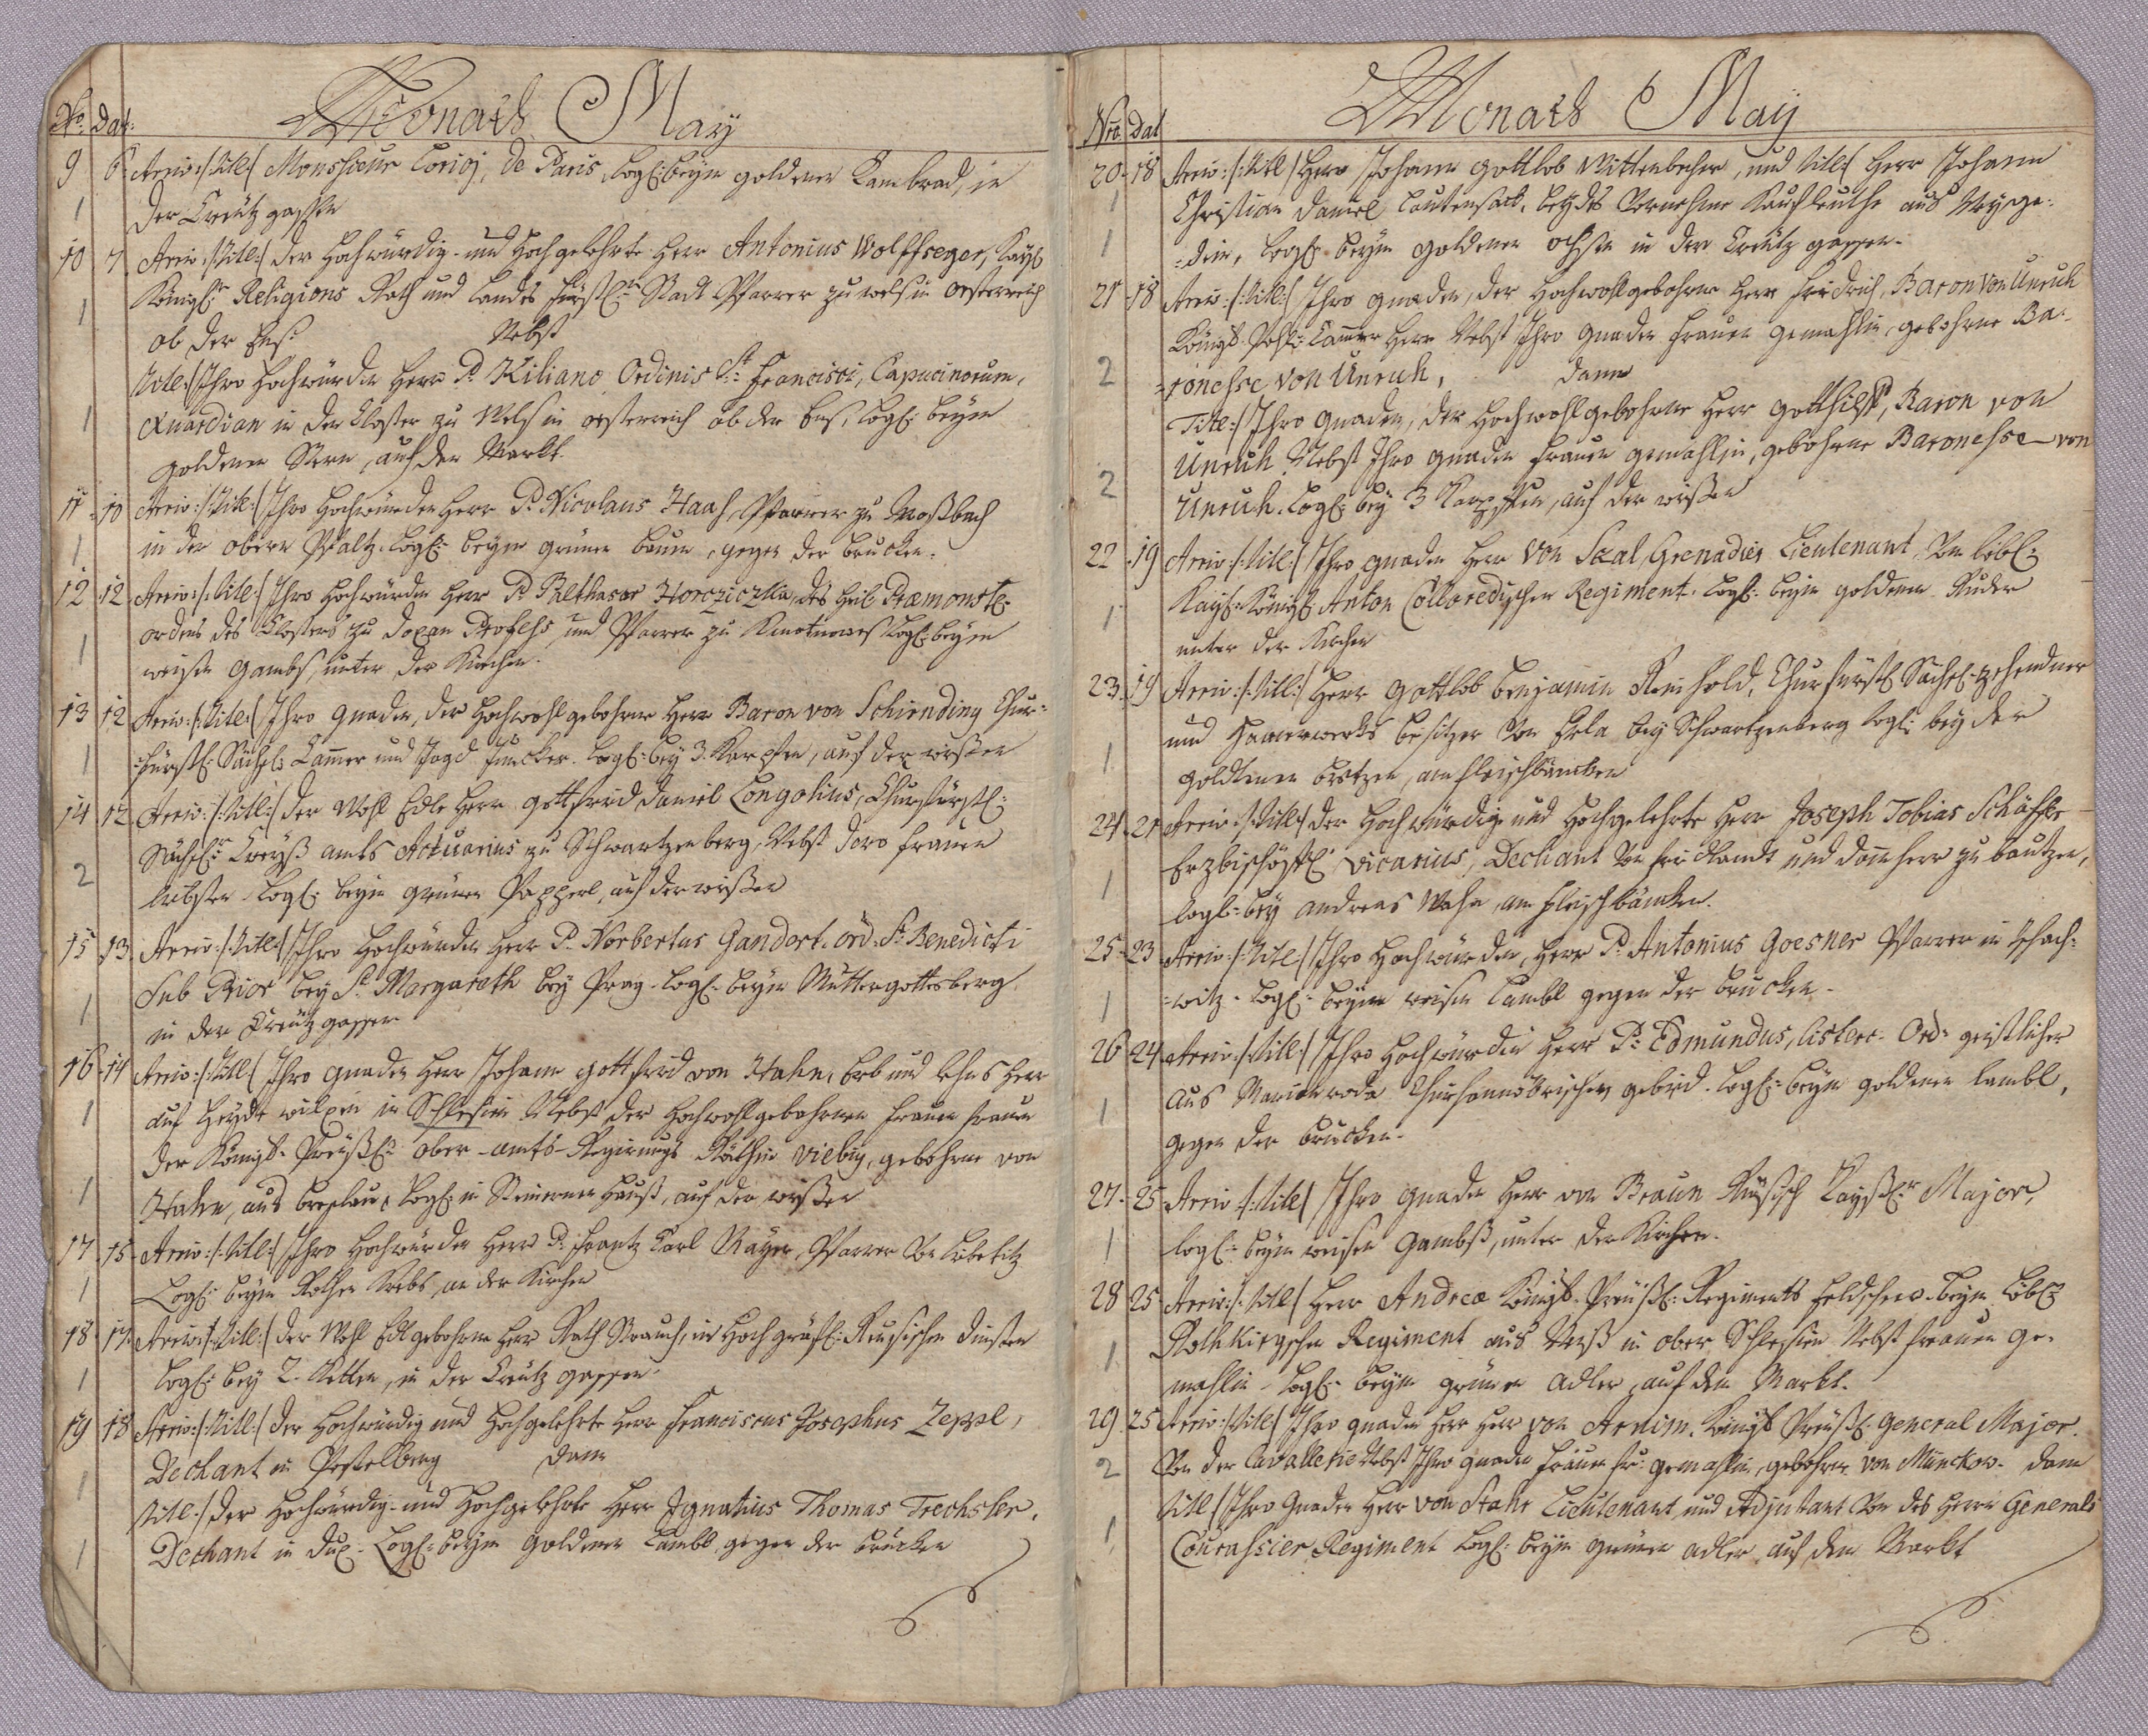 Monats May
Nro. Dat:
9 6 Ariv:/:Titl:/ Monshieur Lorioj, de Paris, Logl: beym goldenen Kambrad, in
1 der Creutz gassen
10 7 Ariv:/:Titl:/ der Hochwürdig- und Hochgelehrte Herr Antonius Wolffseger, Kayl
1 Königl:r Religions Rath und Landes Fürstl:n Stadt Pfarrer zu Wels in Oesterreich
ob der Ens: Nebst
Titl:/ Ihro Hochwürden Herr P. Kiliano Ordinis Sti: Francisci, Capucinorum,
1 Quardian in der Closter zu Wels in oesterreich ob der Ens, Logl: beym
goldenen Stern, auf der Markt.
11 10 Ariv:/:Titl:/ Ihro Hochwürden Herr P. Nicolaus Haas, Pfarrer zu Moßbach
1 in der obern Pfaltz. Logl: beym grünen baum, gegen der brucken.
12 12 Ariv:/:Titl:/ Ihro Hochwürden Herr P. Balthasar Horcziczka, des Heil Præmonst:
1 ordens des Closters zu Doxan Profess, und Pfarrer zu Logl: beym
weissen Gambs, unter der Kirchen.
13 12 Ariv:/:Titl:/ Ihro Gnaden, der Hochwohlgebohrne Herr Baron von Schirnding Chur-
1 fürstl: Sächsl: Cammer und Jagd Juncker. Logl: bey 3. Karpfen, auf der wießen
14 12 Ariv:/:Titl:/ der Wohl Edle Herr Gottfried Daniel Longolius, Churfürstl:
Sächsl:r Creyß amts Actuarius zu Schwartzenberg, Nebst dero Frauen
2 liebsten Logl: beym grünen Papperl, auf der wießen
15 13 Ariv:/:Titl:/ Ihro Hochwürden Herr P. Norbertus Gandort. Ord: St: Benedicti
1 Sub Prior bey St: Margareth bey Prag. Logl: beym Muttergottesberg
in der Creutz gassen
16 14 Ariv:/:Titl:/ Ihro Gnaden Herr Johann Gottfried von Hahn, Erb und Lehns Herr
1 auf Heyde wilxen in Schlesien Nebst der Hochwohlgebohrnen Frauen Frauen
der Königl: Preüßl: Ober-amts-Regierungs Räthin Viebig, gebohrne von
1 Hahn, aus Breslau, Logl: in Steinernen Hauß, auf der wießen
17 15 Ariv:/:Titl:/ Ihro Hochwürden Herr P. Frantz Carl Mayer, Pfarrer Von
1 Logl: beym Rothen Krebs, an der Kirchen
18 17 Ariv:/:Titl:/ der Wohl Edlgebohrne Herr Rath Strauch, in Hochgräfl: Reusischen Diensten
1 Logl: bey 2. Ketten, in der Creutz gassen
19 18 Ariv:/:Titl:/ der Hochwürdig und Hochgelehrte Herr Franciscus Josephus Zeppl,
1 Dechant in Postelberg dann
Titl:/ der Hochwürdig- und Hochgelehrte Herr Ignatius Thomas Trechsler,
1 Dechant in Dux. Logl: beym goldenen Lambl, gegen der brücken
Monats May
Nro. Dat
20 18 Ariv:/:Titl:/ Herr Johann Gottlob Mittenbecher, und Titl:/ Herr Johann
1 Christian Daniel Lautensack, beydes Vornehme Kaufleuthe aus Magde-
1 =deburg, Logl: beym goldenen ochsen in der Creutz gassen.
21 18 Ariv:/:Titl:/ Ihro Gnaden, der Hochwohlgebohrne Herr Fridrich, Baron von Unruh
Königl: Pohl: Cammer Herr Nebst Ihro Gnaden Frauen Gemahlin, gebohrne Ba-
2 =ronesse von Unruh, dann
Titl:/ Ihro Gnaden, der Hochwohlgebohrne Herr Gotthilff, Baron von
2 Unruh Nebst Ihro Gnaden Frauen Gemahlin, gebohrne Baronesse von
Unruh. Logl: bey 3 Karpffen, auf der wießen
22 19 Ariv:/:Titl:/ Ihro Gnaden Herr von Seal, Grenadier Lieutenant, Von löbl:
1 Kayl: Königl: Anton Colloredischen Regiment. Logl: beym goldenen Ruder
unter der Kirchen
23 19 Ariv:/:Titl:/ Herr Gottlob Benjamin Reinhold, Churfürstl Sächsl: Zehendner
und Hammerwercks besitzer Von Erla bey Schwartzenberg Logl: bey der
1 goldenen bretzen, am Fleischbäncken
24 21 Ariv:/:Titl:/ der Hochwürdig und Hochgelehrte Herr Joseph Tobias Schäffle
Erzbischöfl: Vicarius, Dechant Von Fridlandt und Domherr zu Bautzen,
1 Logl: bey Andreas Mahn, am Fleischbäncken.
25 23 Ariv:/:Titl:/ Ihro Hochwürden, Herr P. Antonius Goesner Pfarrer in Tschach-
1 =witz. Logl: beym weissen Lambl gegen der brucken.
26 24 Ariv:/:Titl:/ Ihro Hochwürden Herr P. Edmundus, Cisterc: Ord: geistlicher
1 aus Marienroda Churhannövrischen gebird. Logl: beym goldenen Lambl,
gegen der brucken.
27 25 Ariv:/:Titl:/ Ihro Gnaden Herr von Braun Rußisch Kayßl:r Major,
1 Logl: beym weissen Gambß, unter der Kirchen.
28 25 Ariv:/:Titl:/ Herr Andreæ Königl: Preüßl: Regiments Feldscherr beym löbl:
1 Rothkirgschen Regiment aus Neiß in Ober Schlesien Nebst Frauen Ge-
mahlin. Logl: beym grünen Adler, auf dem Markt.
29 25 Ariv:/:Titl:/ Ihro Gnaden Herr Herr von Arnim, Königl: Preußl: General Major.
2 Von der Cavallerie Nebst Ihro Gnaden Frauen Fr: Gemahlin, gebohrne von Münchow. dann
Titl:/ Ihro Gnaden Herr von Stahr Lieutenant, und Adjutant Von des Herrn Generals
1 Courassier Regiment Logl: beym grünen adler, auf dem Markt